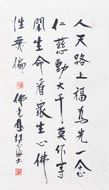 人天路上福為先一念
仁慈動大千莫作等
閒生命看眾生心佛
性無偏